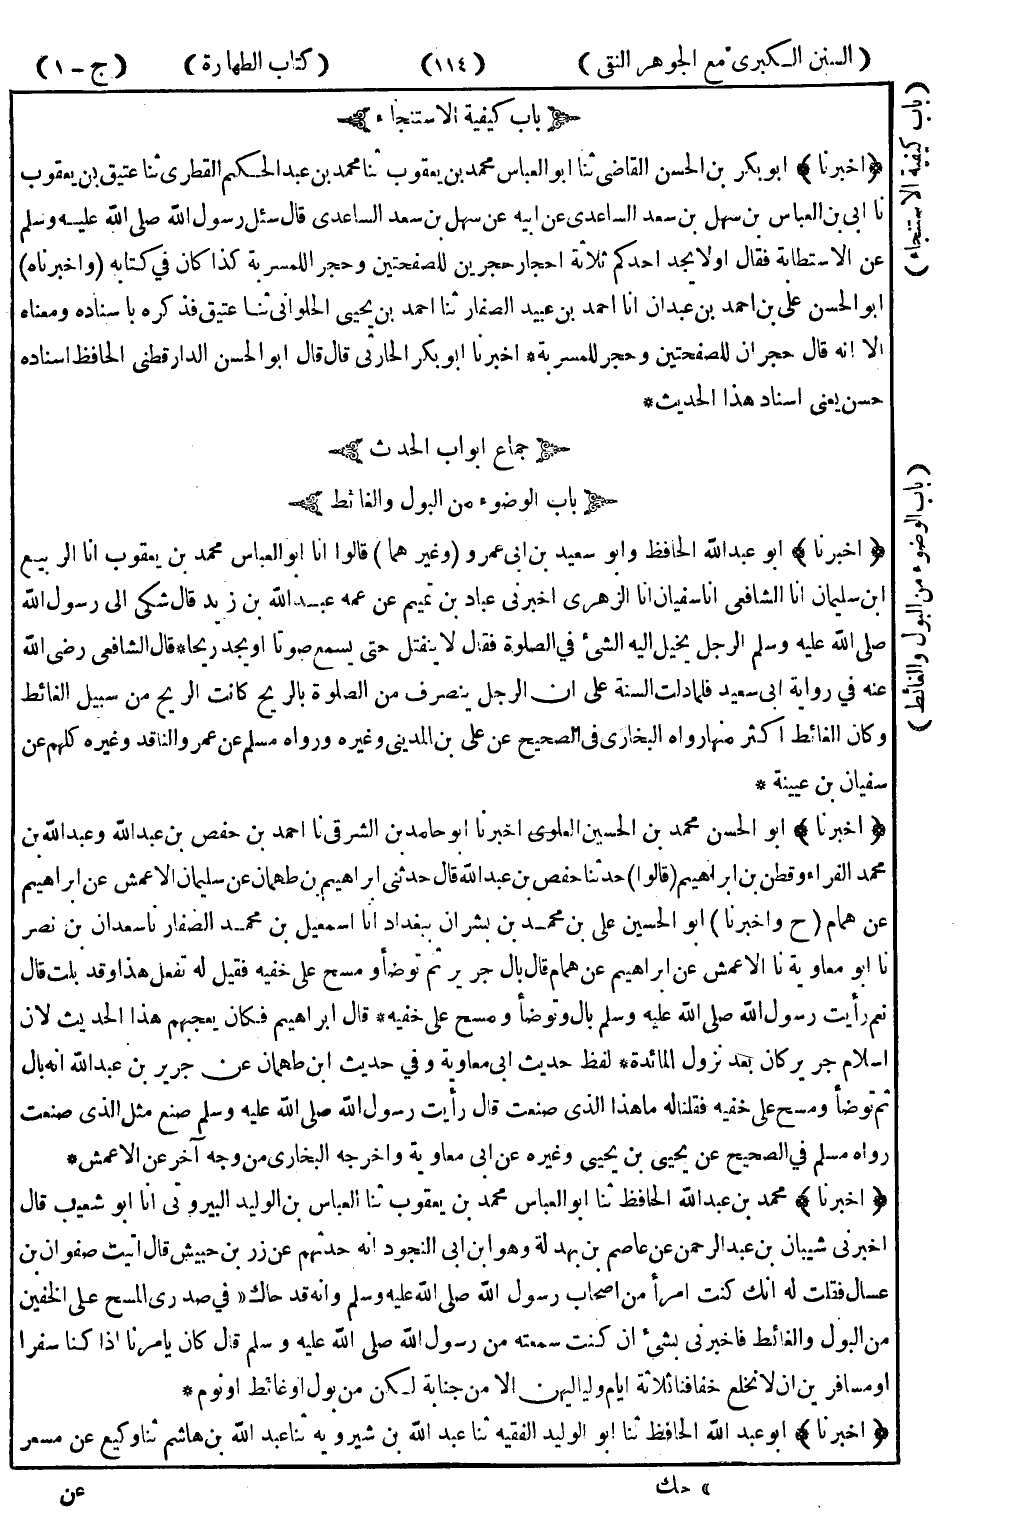 (السنن الكبرى مع الجوهر النقى) (١١٤) (كتاب الطهارة) (ج - ١)
باب كيفية الاستنجاء
﴿اخبرنا﴾ ابوبكر بن الحسن القاضى ثنا ابوالعباس محمد بن يعقوب ثنا محمد بن عبد الحكيم القطرى ثنا عتيق بن يعقوب
نا ابى بن العباس بن سهل بن سعد الساعدى عن ابيه عن سهل بن سعد الساعدى قال سئل رسول الله صلى الله عليه وسلم
عن الاستطابة فقال اولا يجد احدكم ثلاثة احجار حجرين للصفحتين وحجر اللمسربة كذا كان في كتابه (واخبرناه)
ابو الحسن على بن احمد بن عبدان انا احمد بن عبيد الصفار ثنا احمد بن يحيى الحلوانى ثنا عتيق فذكره باسناده ومعناه
الا انه قال حجران للصفحتين وحجر للمسربة* اخبرنا ابوبكر الحارثى قال قال ابو الحسن الدارقطنى الحافظ اسناده
حسن يعنى اسناد هذا الحديث*
جماع ابواب الحدث
باب الوضوء من البول والغائط
﴿اخبرنا﴾ ابو عبدالله الحافظ وابو سعيد بن ابى عمرو (وغير هما) قالوا انا ابوالعباس محمد بن يعقوب انا الربيع
ابن سليمان انا الشافعى انا سفيان انا الزهرى اخبرنى عباد بن تميم عن عمه عبد الله بن زيد قال شكى الى رسول الله
صلى الله عليه وسلم الرجل يخيل اليه الشئ في الصلوة فقال لا ينفتل حتى يسمع صوتا اويجد ريحا*قال الشافعى رضى الله
عنه في رواية ابى سعيد فلما دلت السنة على ان الرجل ينصرف من الصلوة بالريح كانت الريح من سبيل الغائط
وكان الغائط اكثر منها رواه البخارى فى الصحيح عن على بن المدينى وغيره ورواه مسلم عن عمرو الناقد وغيره كلهم عن
سفيان بن عيينة *
﴿اخبرنا﴾ ابو الحسن محمد بن الحسين العلوى اخبرنا ابو حامد بن الشرقى نا احمد بن حفص بن عبدالله وعبدالله بن
محمد الفراء وقطن بن ابراهيم (قالوا) حدثنا حفص بن عبدالله قال حدثنى ابراهيم بن طهمان عن سليمان الاعمش عن ابراهيم
عن همام (ح واخبرنا) ابو الحسين على بن محمد بن بشران ببغداد انا اسمعيل بن محمد الصفار نا سعدان بن نصر
نا ابو معاوية نا الاعمش عن ابراهيم عن همام قال بال جرير ثم توضأ ومسح على خفيه فقيل له تفعل هذا وقد بلت قال
نعم رأيت رسول الله صلى الله عليه وسلم بال وتوضأ ومسح على خفيه* قال ابراهيم فكان يعجبهم هذا الحديث لان
اسلام جرير كان بعد نزول المائدة* لفظ حديث ابى معاوية وفي حديث ابن طهمان عن جرير بن عبدالله انه بال
ثم توضأ ومسح على خفيه فقلناله ماهذا الذى صنعت قال رأيت رسول الله صلى الله عليه وسلم صنع مثل الذى صنعت
رواه مسلم في الصحيح عن يحيى بن يحيى وغيره عن ابى معاوية واخرجه البخارى من وجه آخر عن الاعمش*
﴿اخبرنا﴾ محمد بن عبدالله الحافظ ثنا ابوالعباس محمد بن يعقوب ثنا العباس بن الوليد البيروتى انا ابو شعيب قال
اخبرنى شيبان بن عبدالرحمن عن عاصم بن بهدلة وهو ابن ابى النجود انه حدثهم عن زر بن حبيش قال اتيت صفوان بن
عسال فقلت له انك كنت امرأ من اصحاب رسول الله صلى الله عليه وسلم وانه قد حاك« في صدرى المسح على الخفين
من البول والغائط فاخبرنى بشئ ان كنت سمعته من رسول الله صلى الله عليه وسلم قال كان يامرنا اذا كنا سفرا
او مسافرين ان لا نخلع خفافنا ثلاثة ايام ولياليهن الا من جنابة لكن من بول اوغائط اونوم*
﴿اخبرنا﴾ ابو عبد الله الحافظ ثنا ابو الوليد الفقيه ثنا عبد الله بن شيرويه ثنا عبد الله بن هاشم ثنا وكيع عن مسعر
» حك
عن
(باب كيفية الاستنجاء)
(باب الوضوء من البول والغائط)